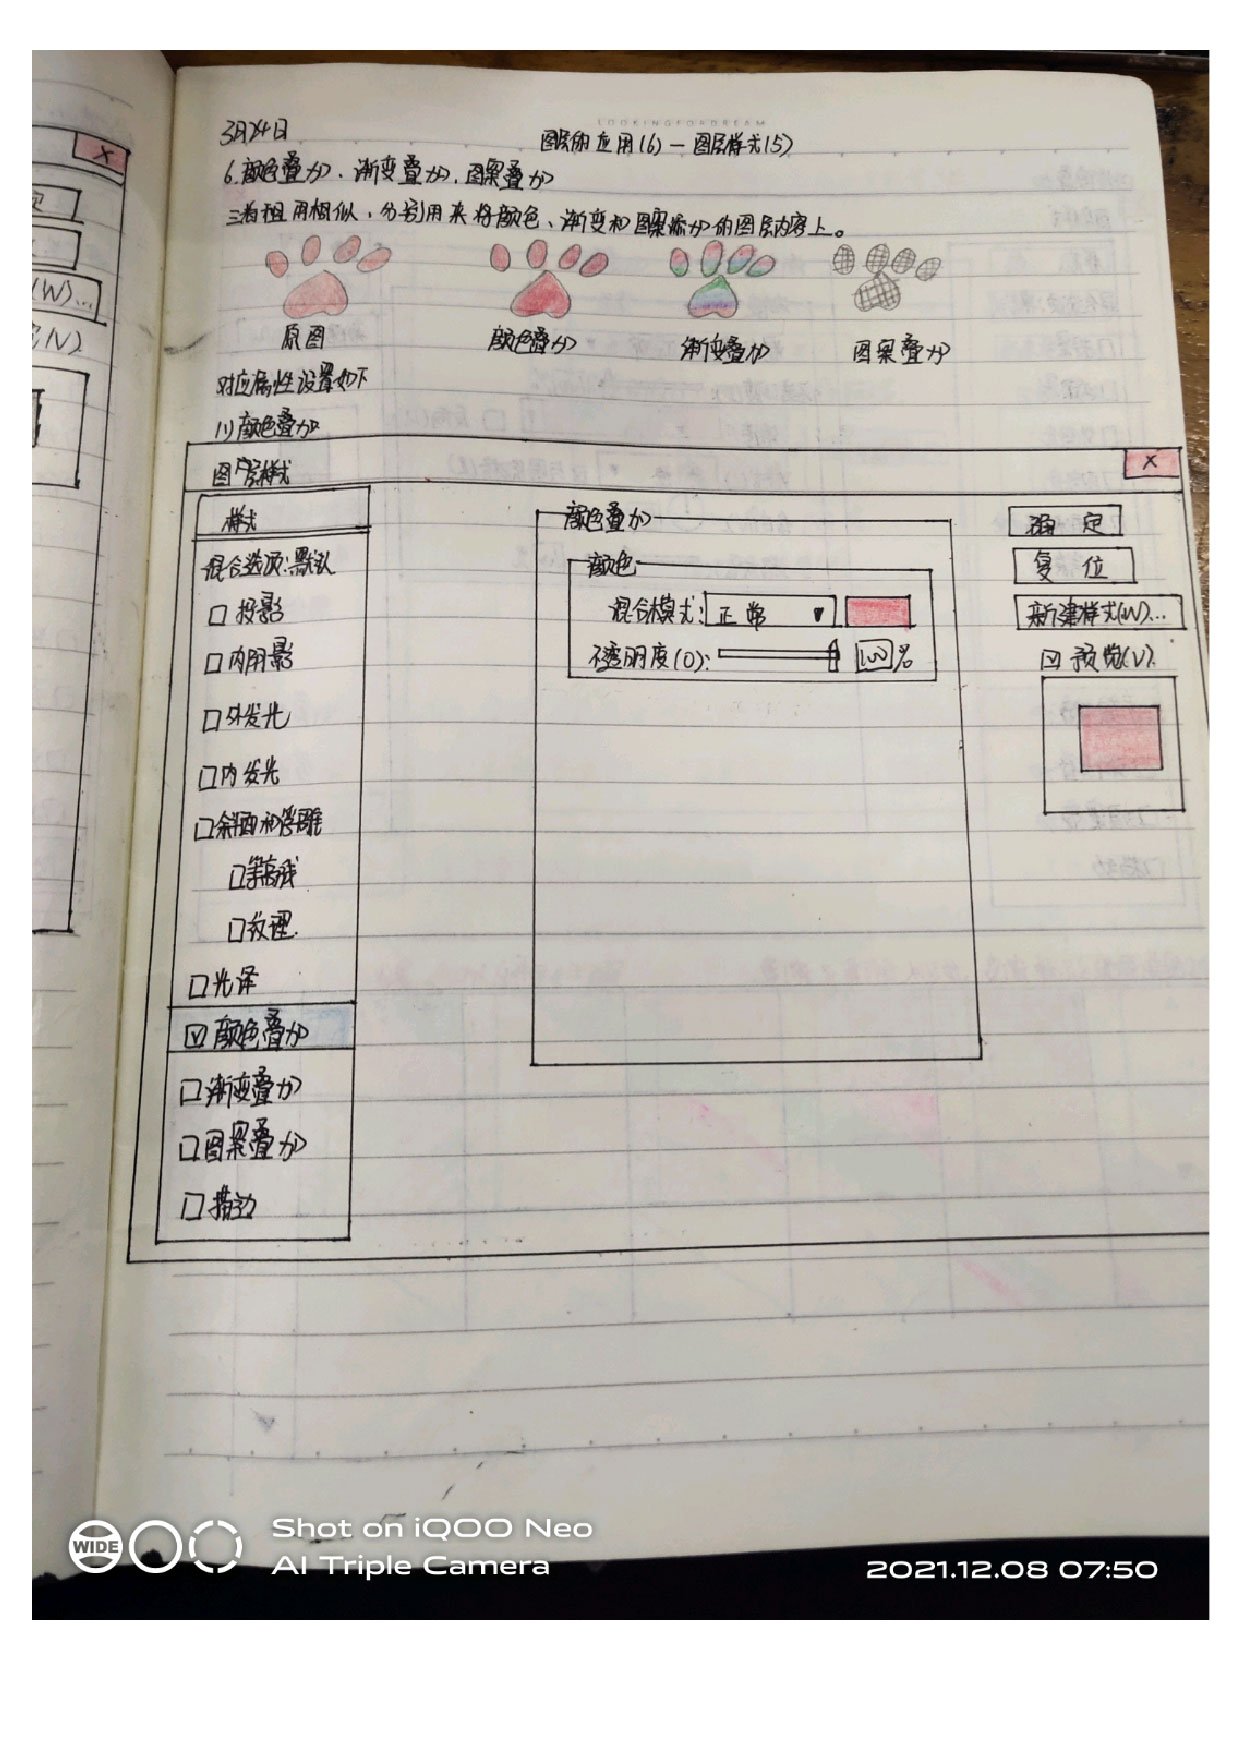 LOOKINGFORDREAM
3月24日
图层的应用(6)—图层样式(5)
6.颜色叠加、渐变叠加、图案叠加
三者作用相似,分别用来将颜色、渐变和图案添加的图层内容上。
原图 颜色叠加 渐变叠加 图案叠加
对应属性设置如下
(1)颜色叠加
图层样式 X
样式
混合选项:默认
投影
内阴影
外发光
内发光
斜面和浮雕
等高线
纹理
光泽
颜色叠加
渐变叠加
图案叠加
描边
颜色叠加
颜色
混合模式: 正常
不透明度(O): 100 %
确定
复位
新建样式(W)...
预览(V)
X
(W)...
(V)
WIDE
Shot on iQOO Neo
AI Triple Camera
2021.12.08 07:50